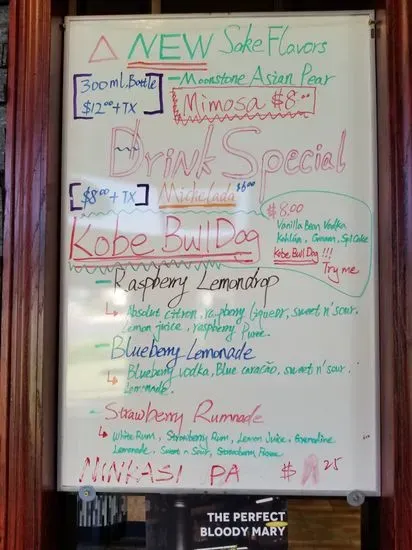 △ NEW Sake Flavors
300ml, Bottle
$12.00 + TX
- Moonstone Asian Pear
Mimosa $8.00
Drink Special
$8.00 + TX
Michelada $6.00
Kobe BullDog
$8.00
Vanilla Bean Vodka
Kahlúa, Cream, Spl Coke
Kobe Bull Dog !!!
Try me
- Raspberry Lemondrop
↳ Absolut citron, raspberry liqueur, sweet n' sour.
Lemon juice, raspberry Puree.
- Blueberry Lemonade
↳ Blueberry vodka, Blue caracao, sweet n' sour.
Lemonade.
- Strawberry Rumnade
↳ White Rum, Strawberry Rum, Lemon Juice, Grenadine
Lemonade, Sweet n' Sour, Strawberry Puree
NINKASI PA $ 25
THE PERFECT
BLOODY MARY